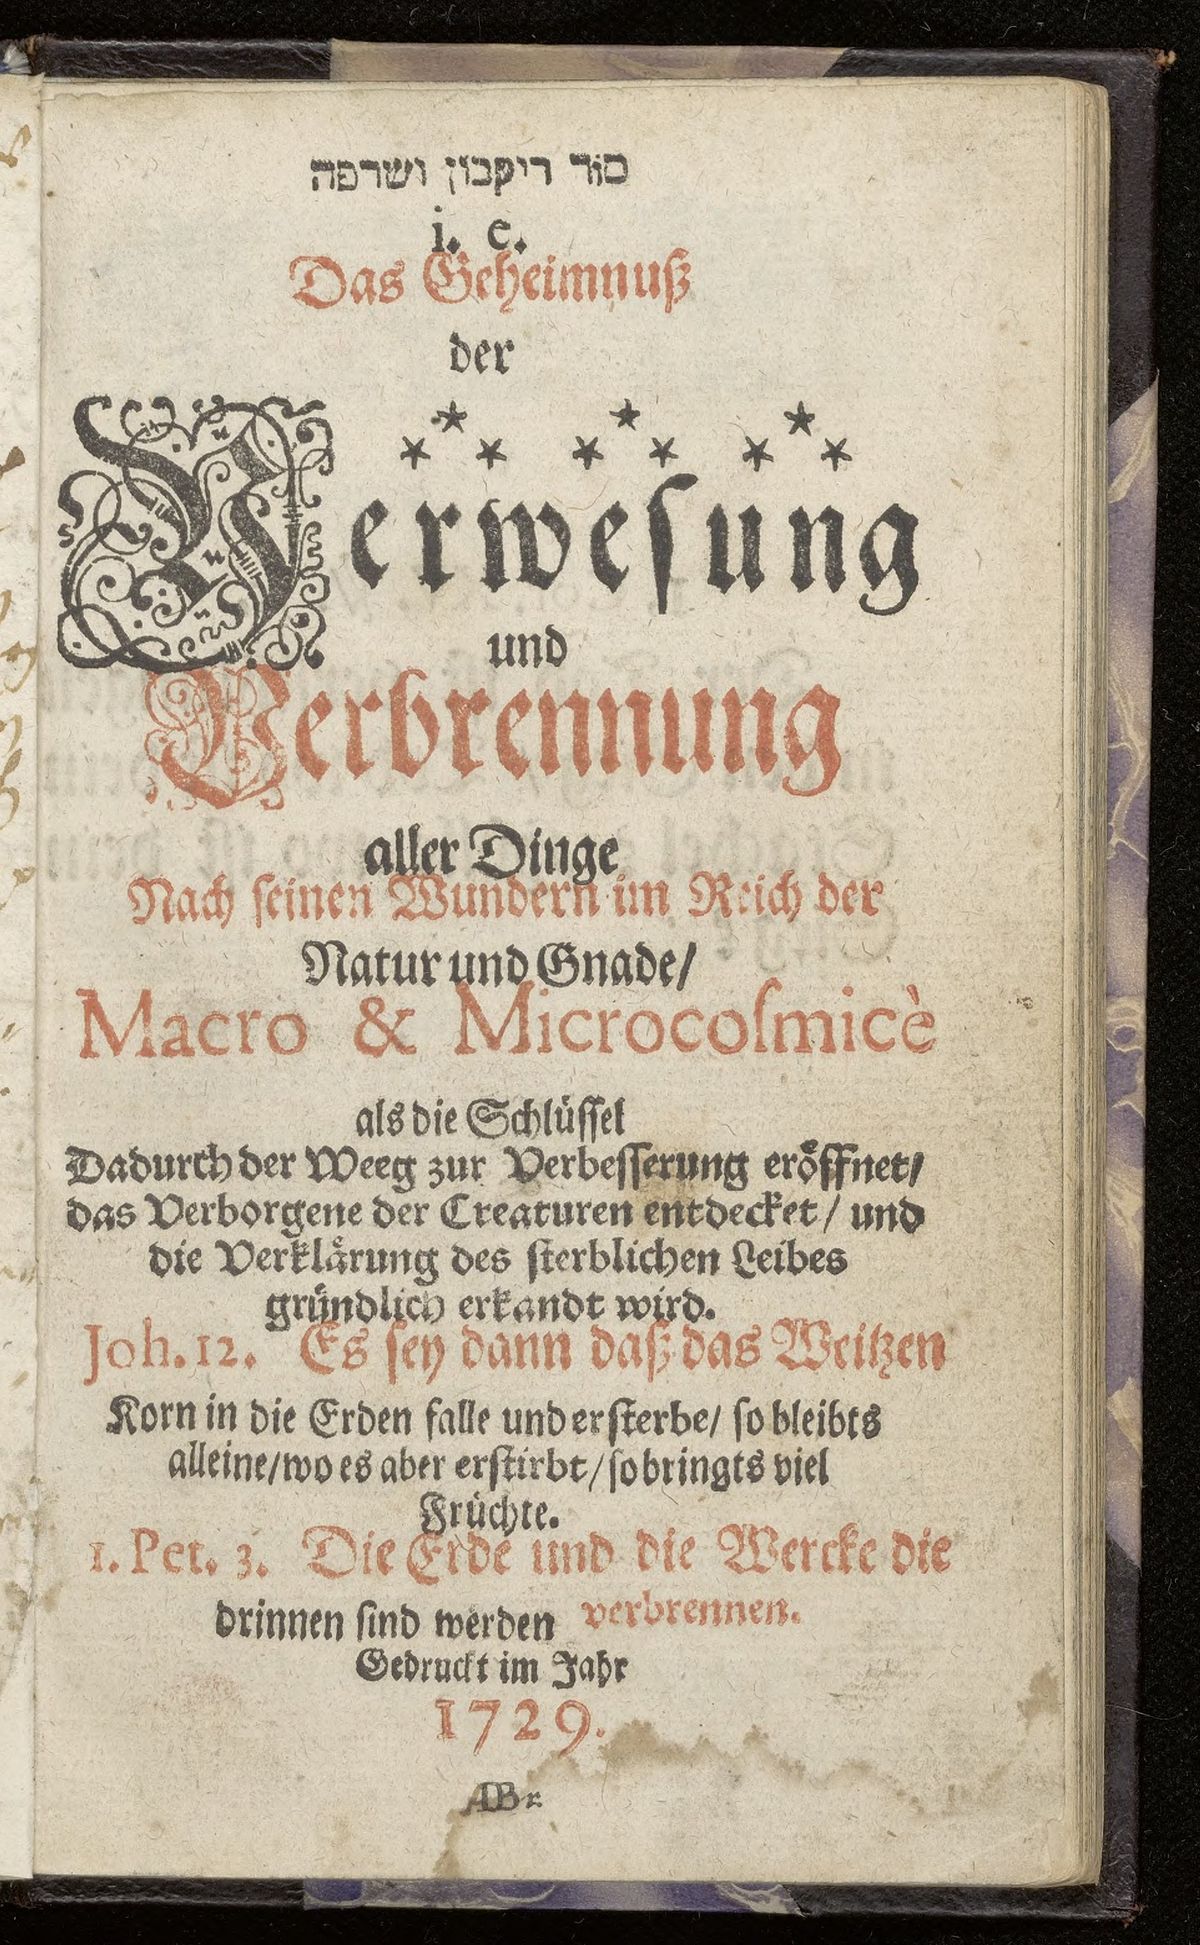 סוד ריקבון ושרפה
i. e.
Das Geheimnuß
der
Verweſung
und
Verbrennung
aller Dinge
Nach ſeinen Wundern im Reich der
Natur und Gnade/
Macro & Microcoſmicè
als die Schlüſſel
Dadurch der Weeg zur Verbeſſerung eröffnet/
das Verborgene der Creaturen entdecket/ und
die Verklärung des ſterblichen Leibes
gründlich erkandt wird.
Joh. 12. Es ſey dann daß das Weitzen
Korn in die Erden falle und erſterbe/ ſo bleibts
alleine/ wo es aber erſtirbt/ ſo bringts viel
Früchte.
1. Pet. 3. Die Erde und die Wercke die
drinnen ſind werden verbrennen.
Gedruckt im Jahr
1729.